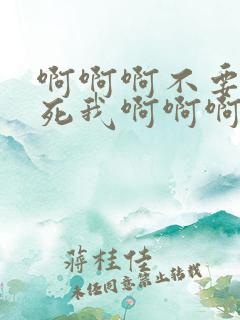 啊啊啊不要
死我啊啊啊
蒋桂佳
未经同意禁止转载